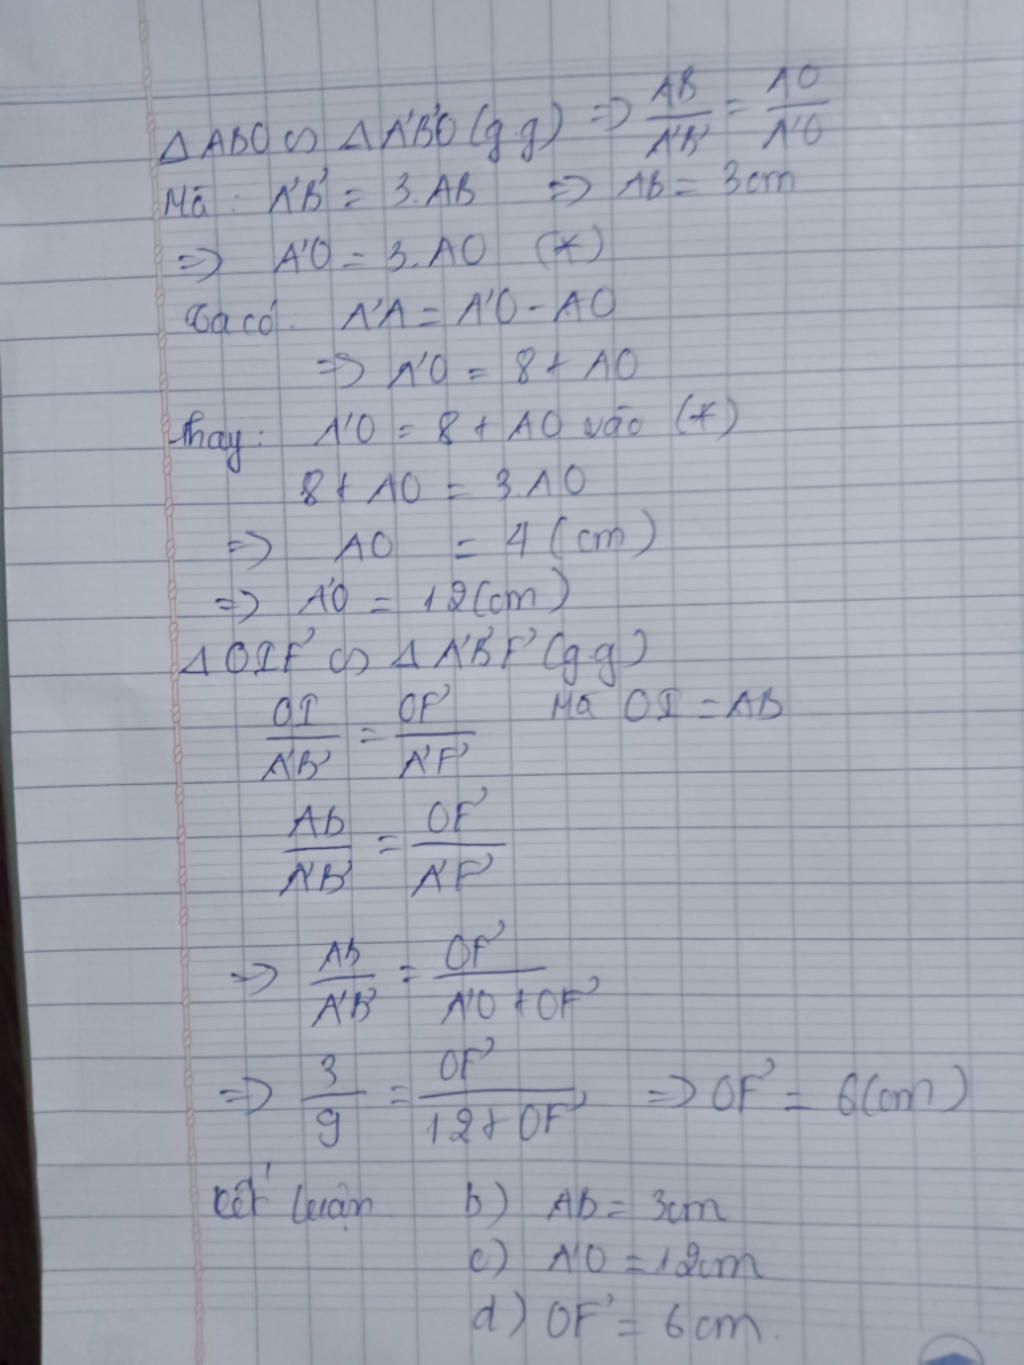 Δ ABO ∽ Δ A'B'O (g.g) => AB/A'B' = AO/A'O
Mà : A'B' = 3.AB => AB = 3cm
=> A'O = 3.AO (*)
Ta có. A'A = A'O - AO
=> A'O = 8 + AO
thay: A'O = 8 + AO vào (*)
8 + AO = 3.AO
=> AO = 4 (cm)
=> A'O = 12 (cm)
Δ OIF' ∽ Δ A'B'F' (g.g)
OI/A'B' = OF'/A'F' Mà OI = AB
AB/A'B' = OF'/A'F'
=> AB/A'B' = OF'/A'O + OF'
=> 3/9 = OF'/12 + OF' => OF' = 6 (cm)
Kết luận b) AB = 3cm
c) A'O = 12cm
d) OF' = 6cm.